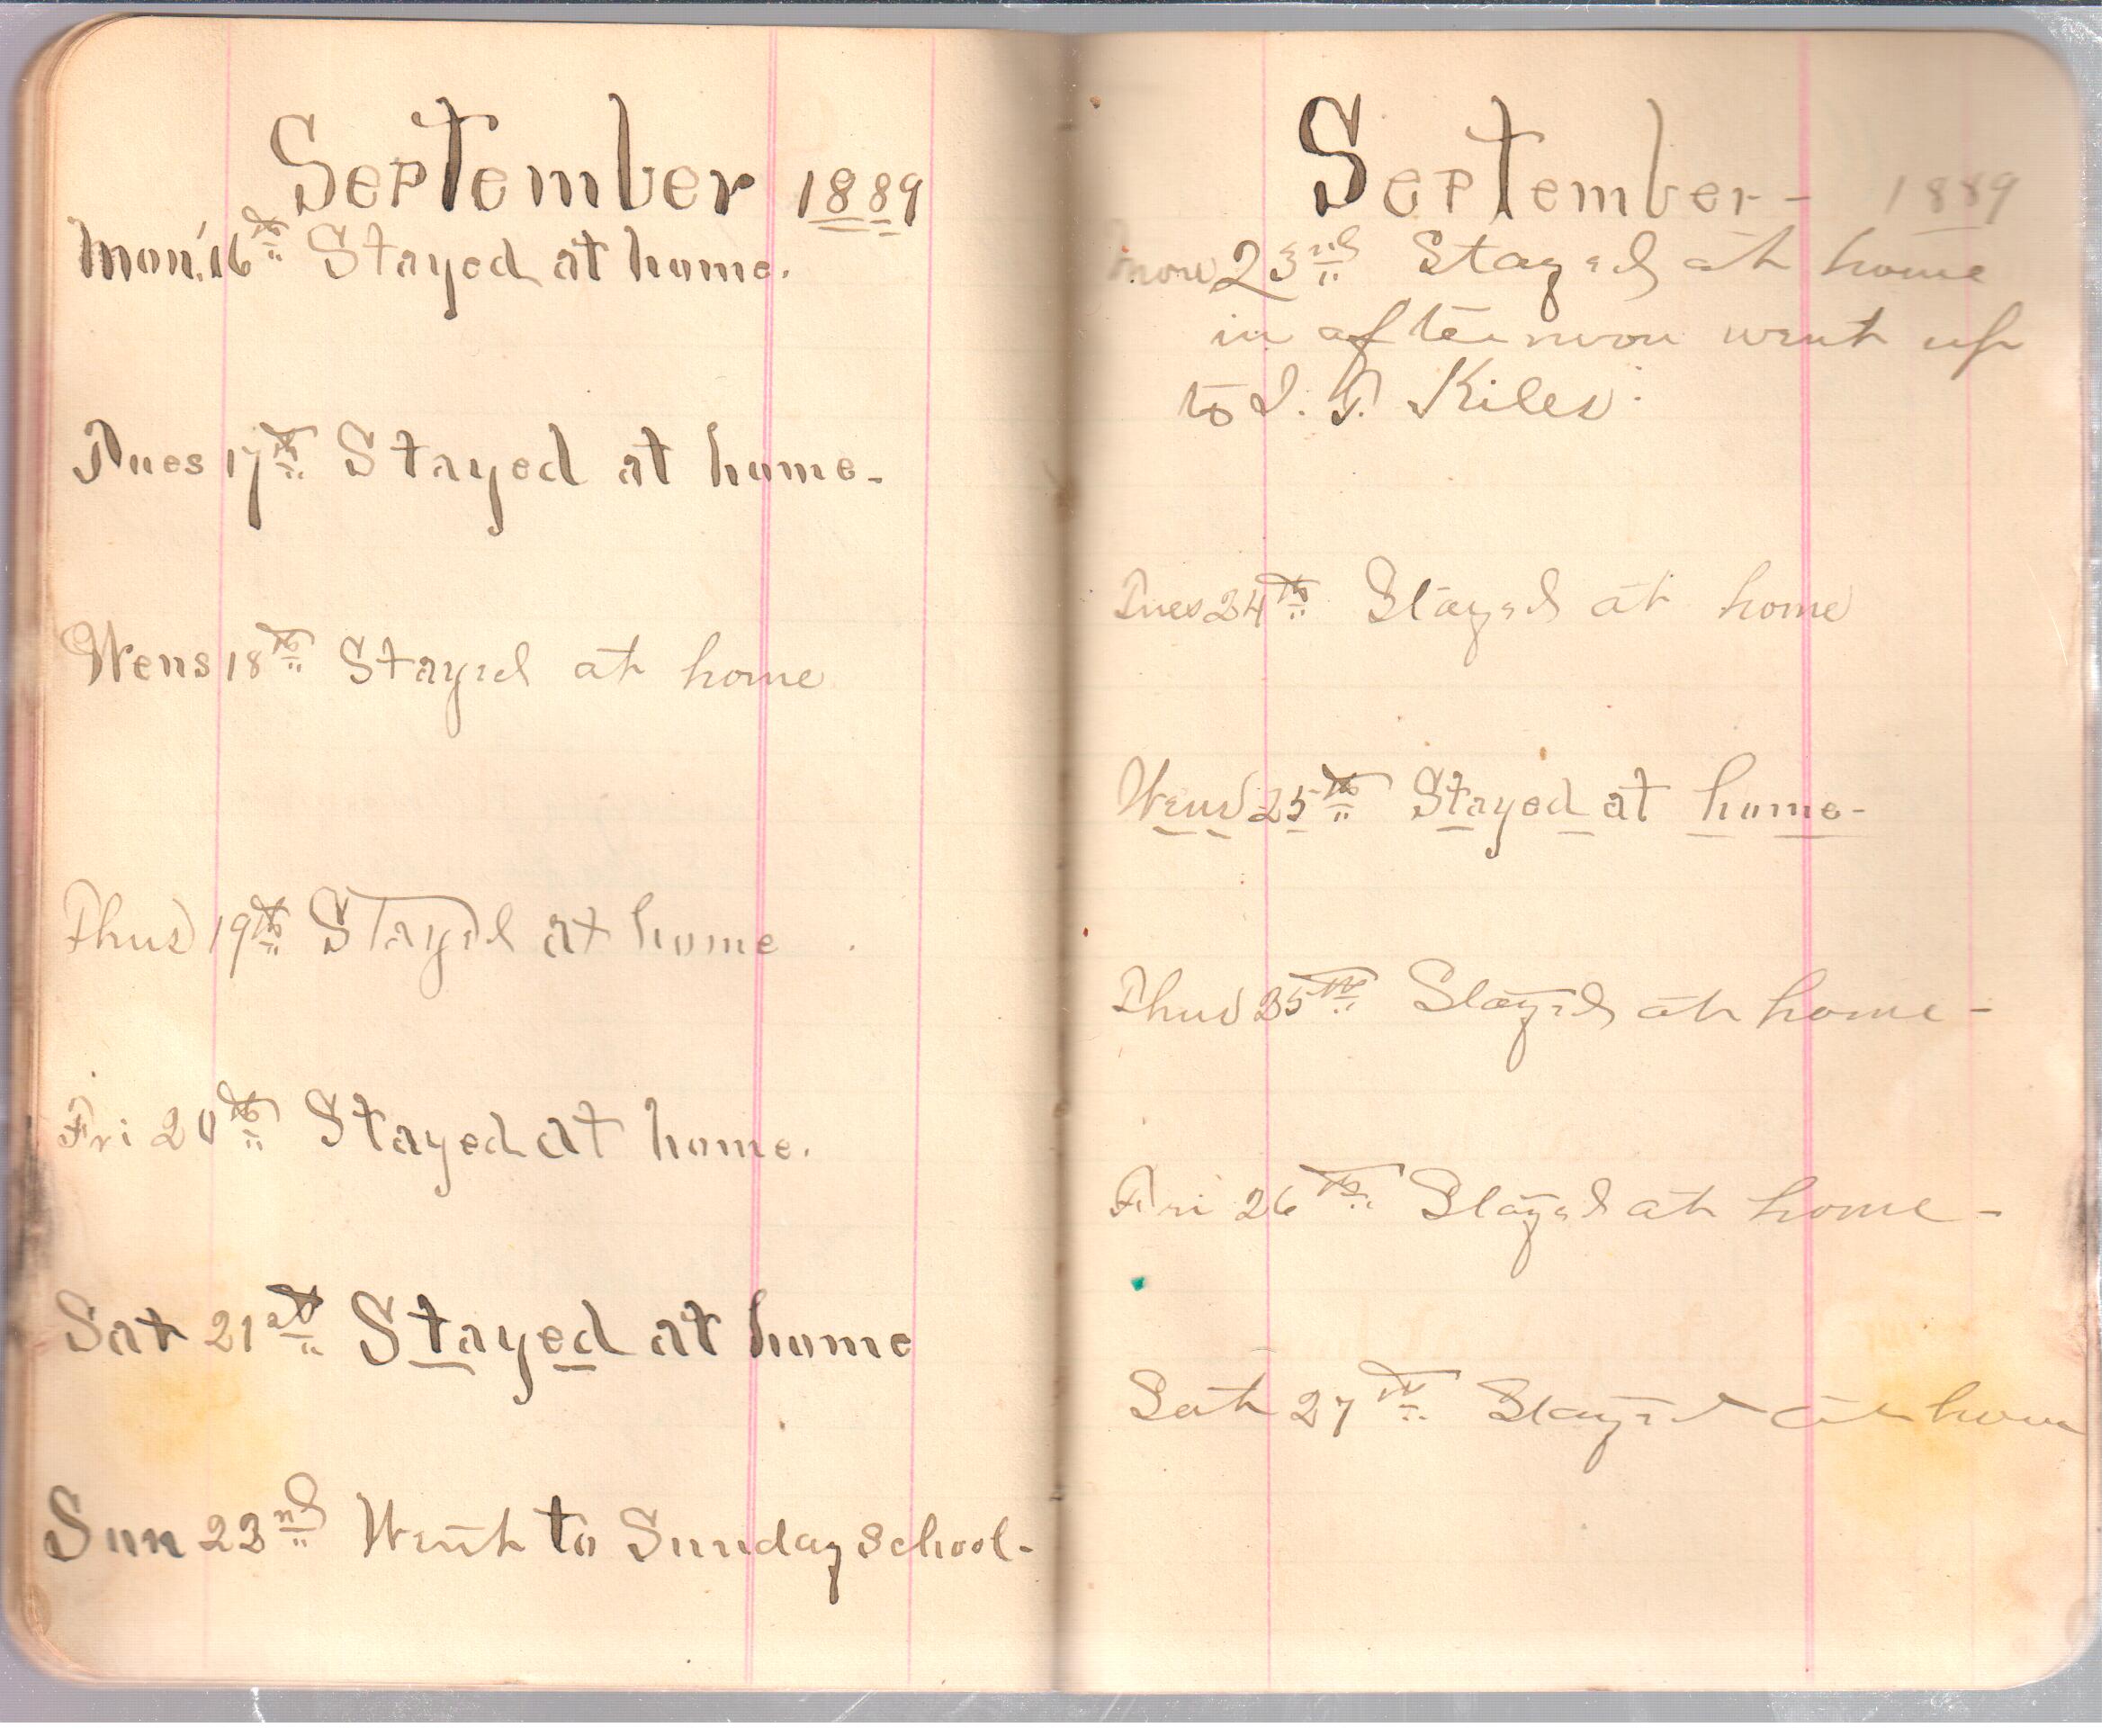 September 1889
Mon. 16th Stayed at home.
Tues 17th Stayed at home-
Wens 18th Stayed at home
Thus 19th Stayed at home
Fri 20th Stayed at home.
Sat 21st Stayed at home
Sun 22nd Went to Sunday school-
September- 1889
Mon 23rd Stayed at home
in afternoon went up
to Kiles.
Tues 24th Stayed at home
Wens 25th Stayed at home-
Thus 25th Stayed at home-
Fri 26th Stayed at home-
Sat 27th Stayed at home